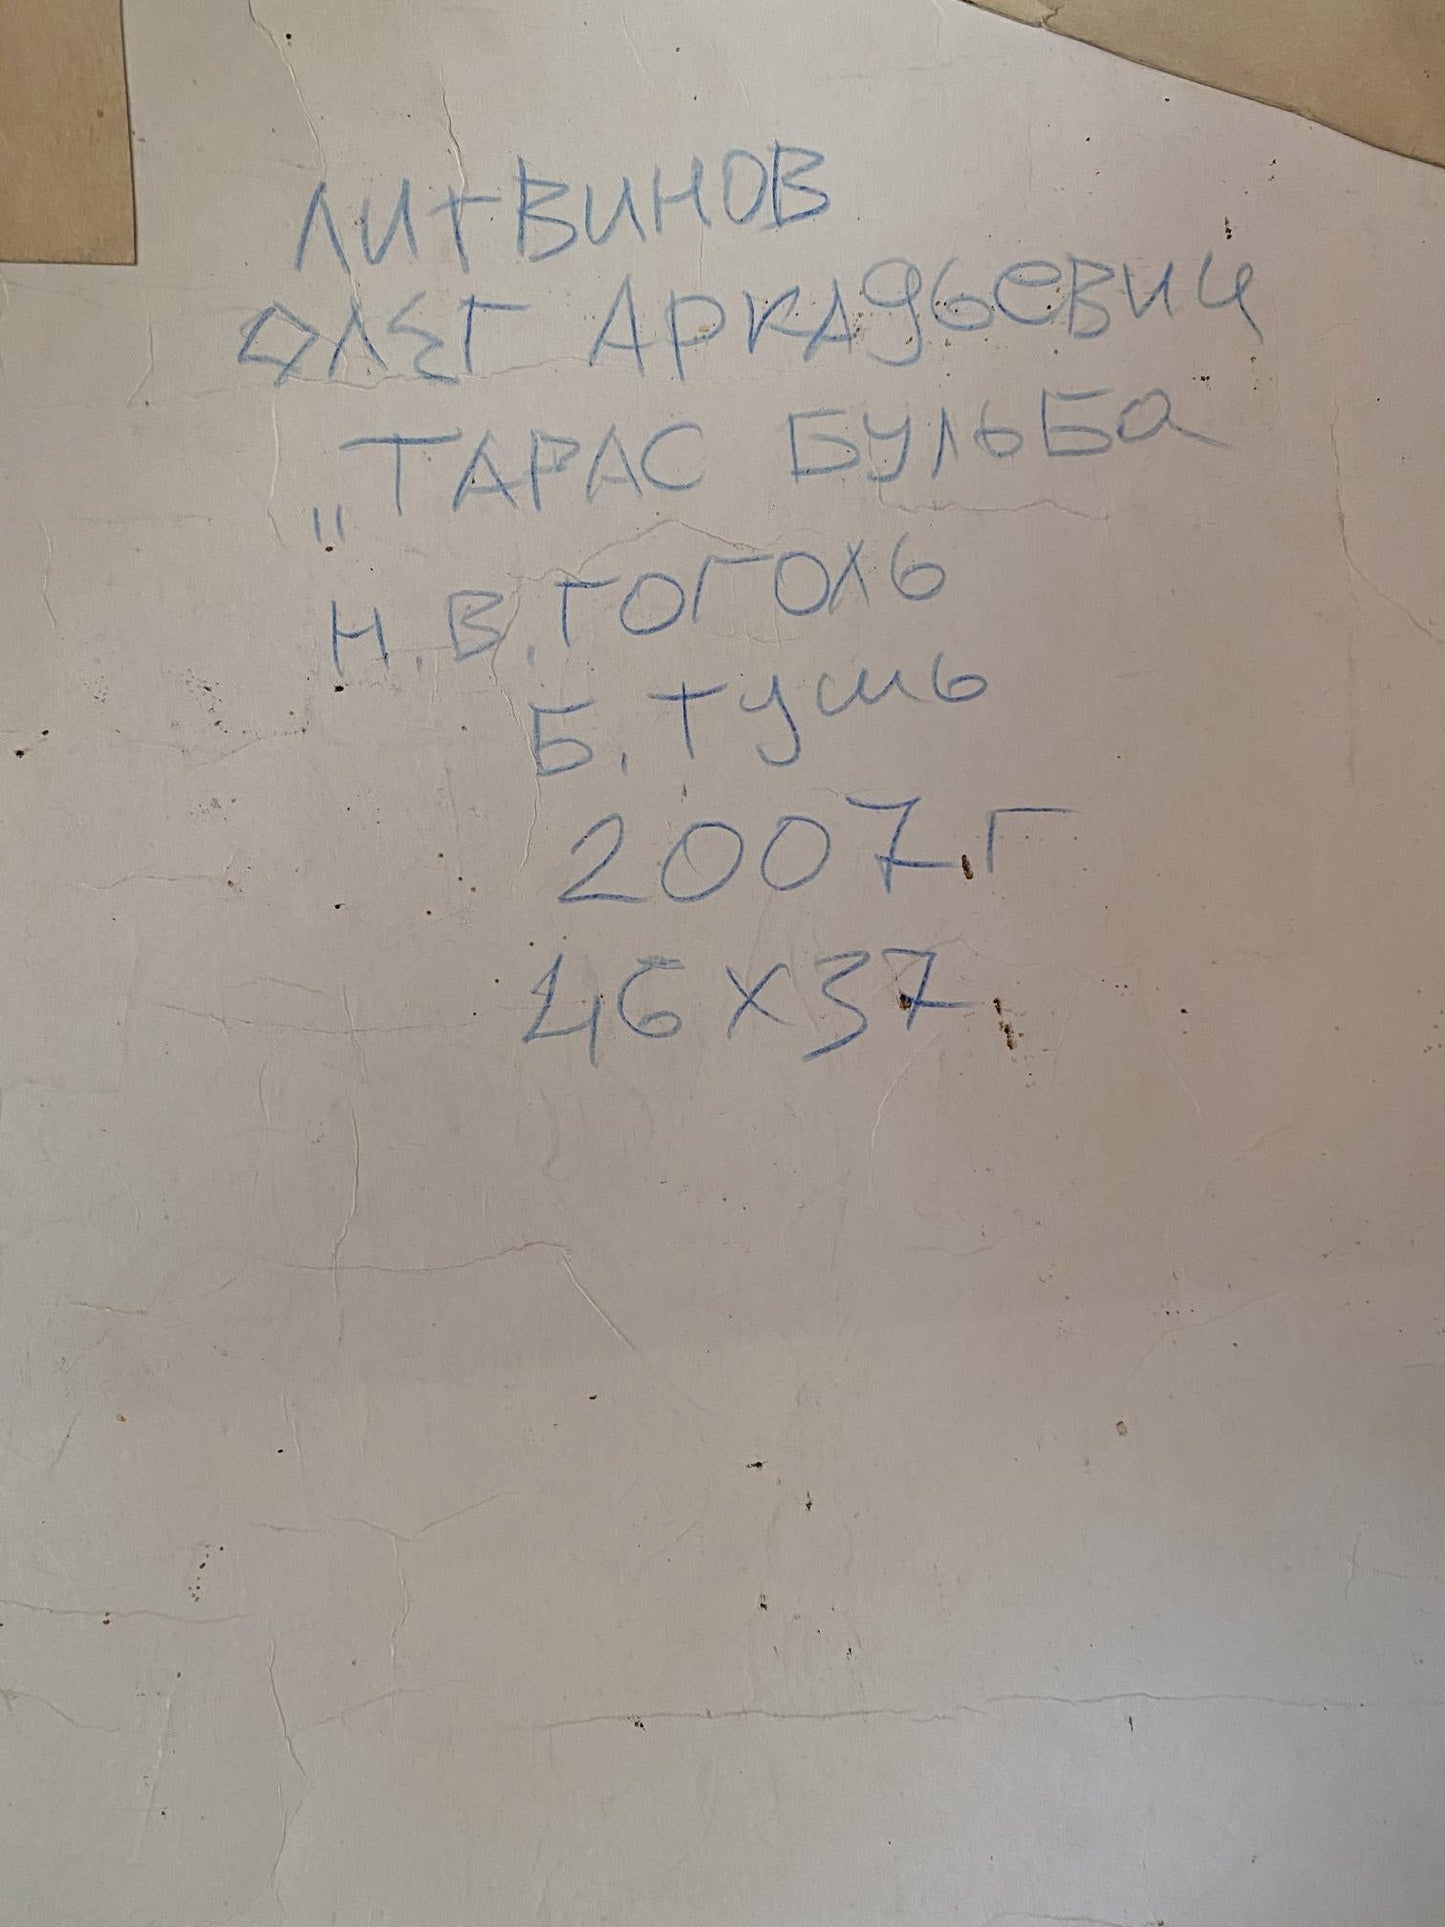 ЛИТВИНОВ
ОЛЕГ АРКАДЬЕВИЧ
„ТАРАС БУЛЬБА
Н.В.ГОГОЛЬ
Б. ТУШЬ
2007.Г
46×37